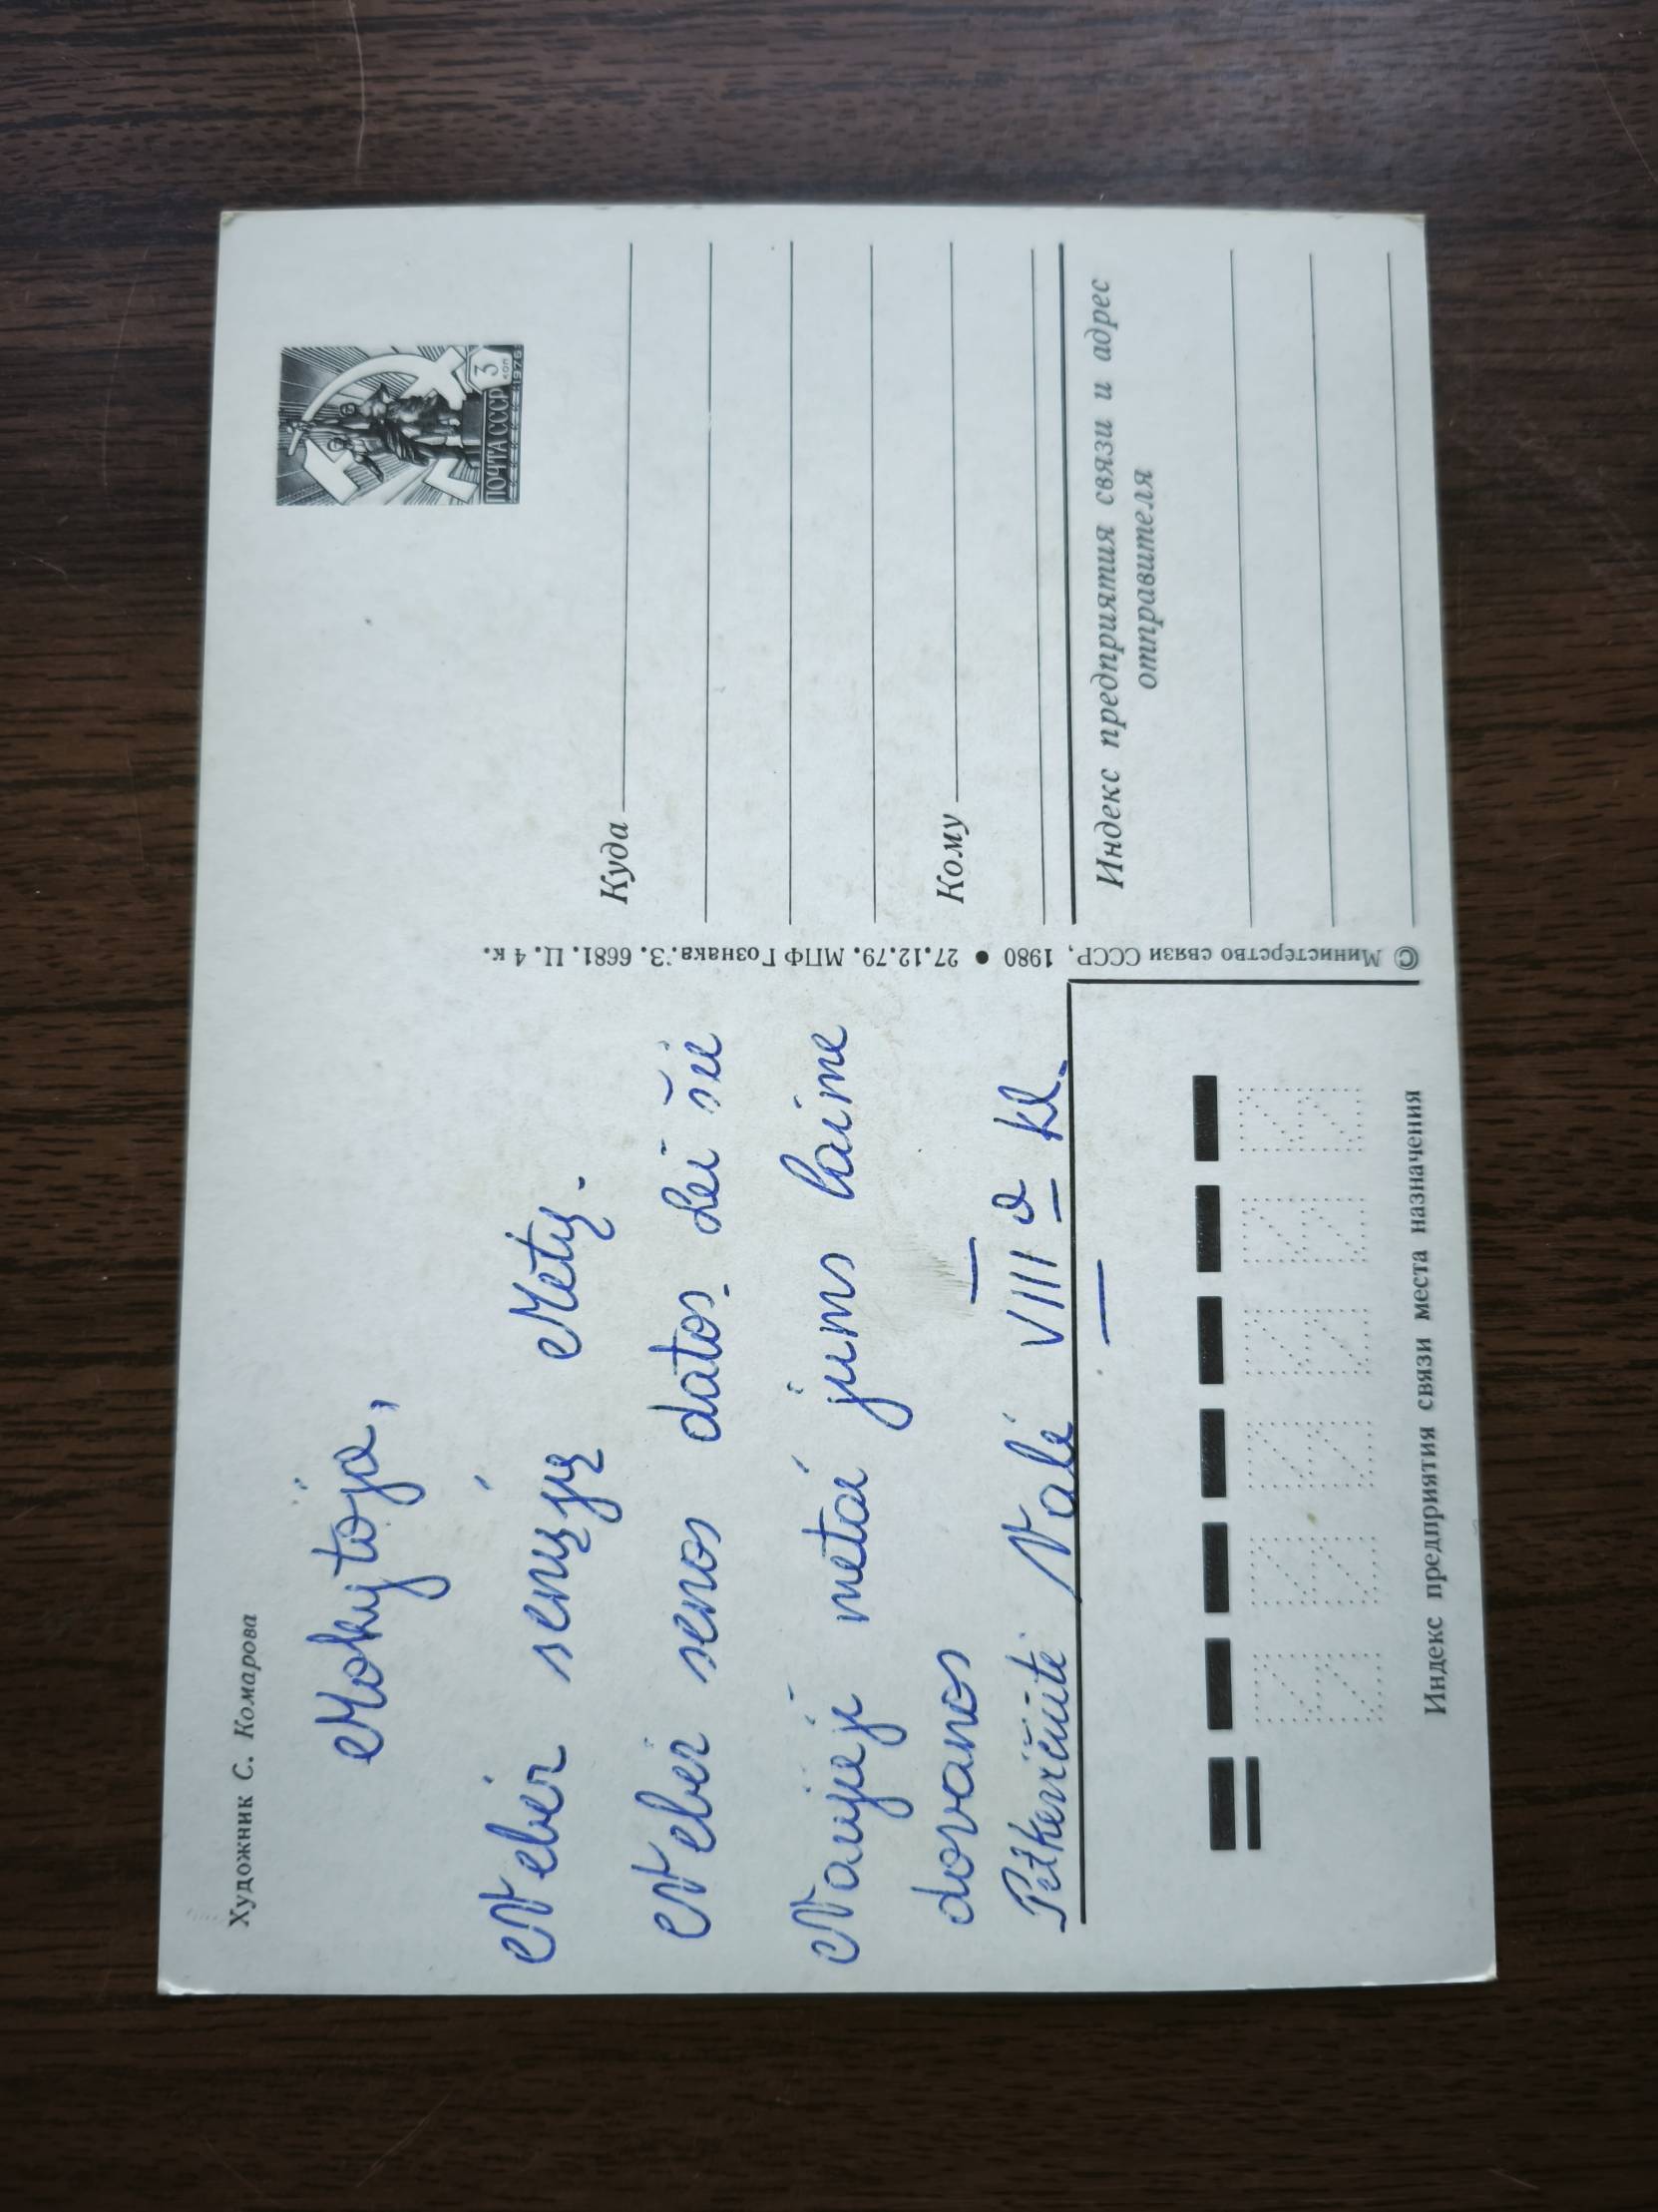 Художник С. Комарова
Mokytoja,
Nebėr senųjų Metų.
Nebėr senos datos. Lei šie
Naujieji metai jums laime
dovanos
Petkevičiūtė Valė VIII a kl.
ПОЧТА СССР
3
коп
1976
Куда
Кому
Индекс предприятия связи и адрес
отправителя
© Министерство связи СССР, 1980 ● 27.12.79. МПФ Гознака. З. 6681. Ц. 4 к.
Индекс предприятия связи места назначения